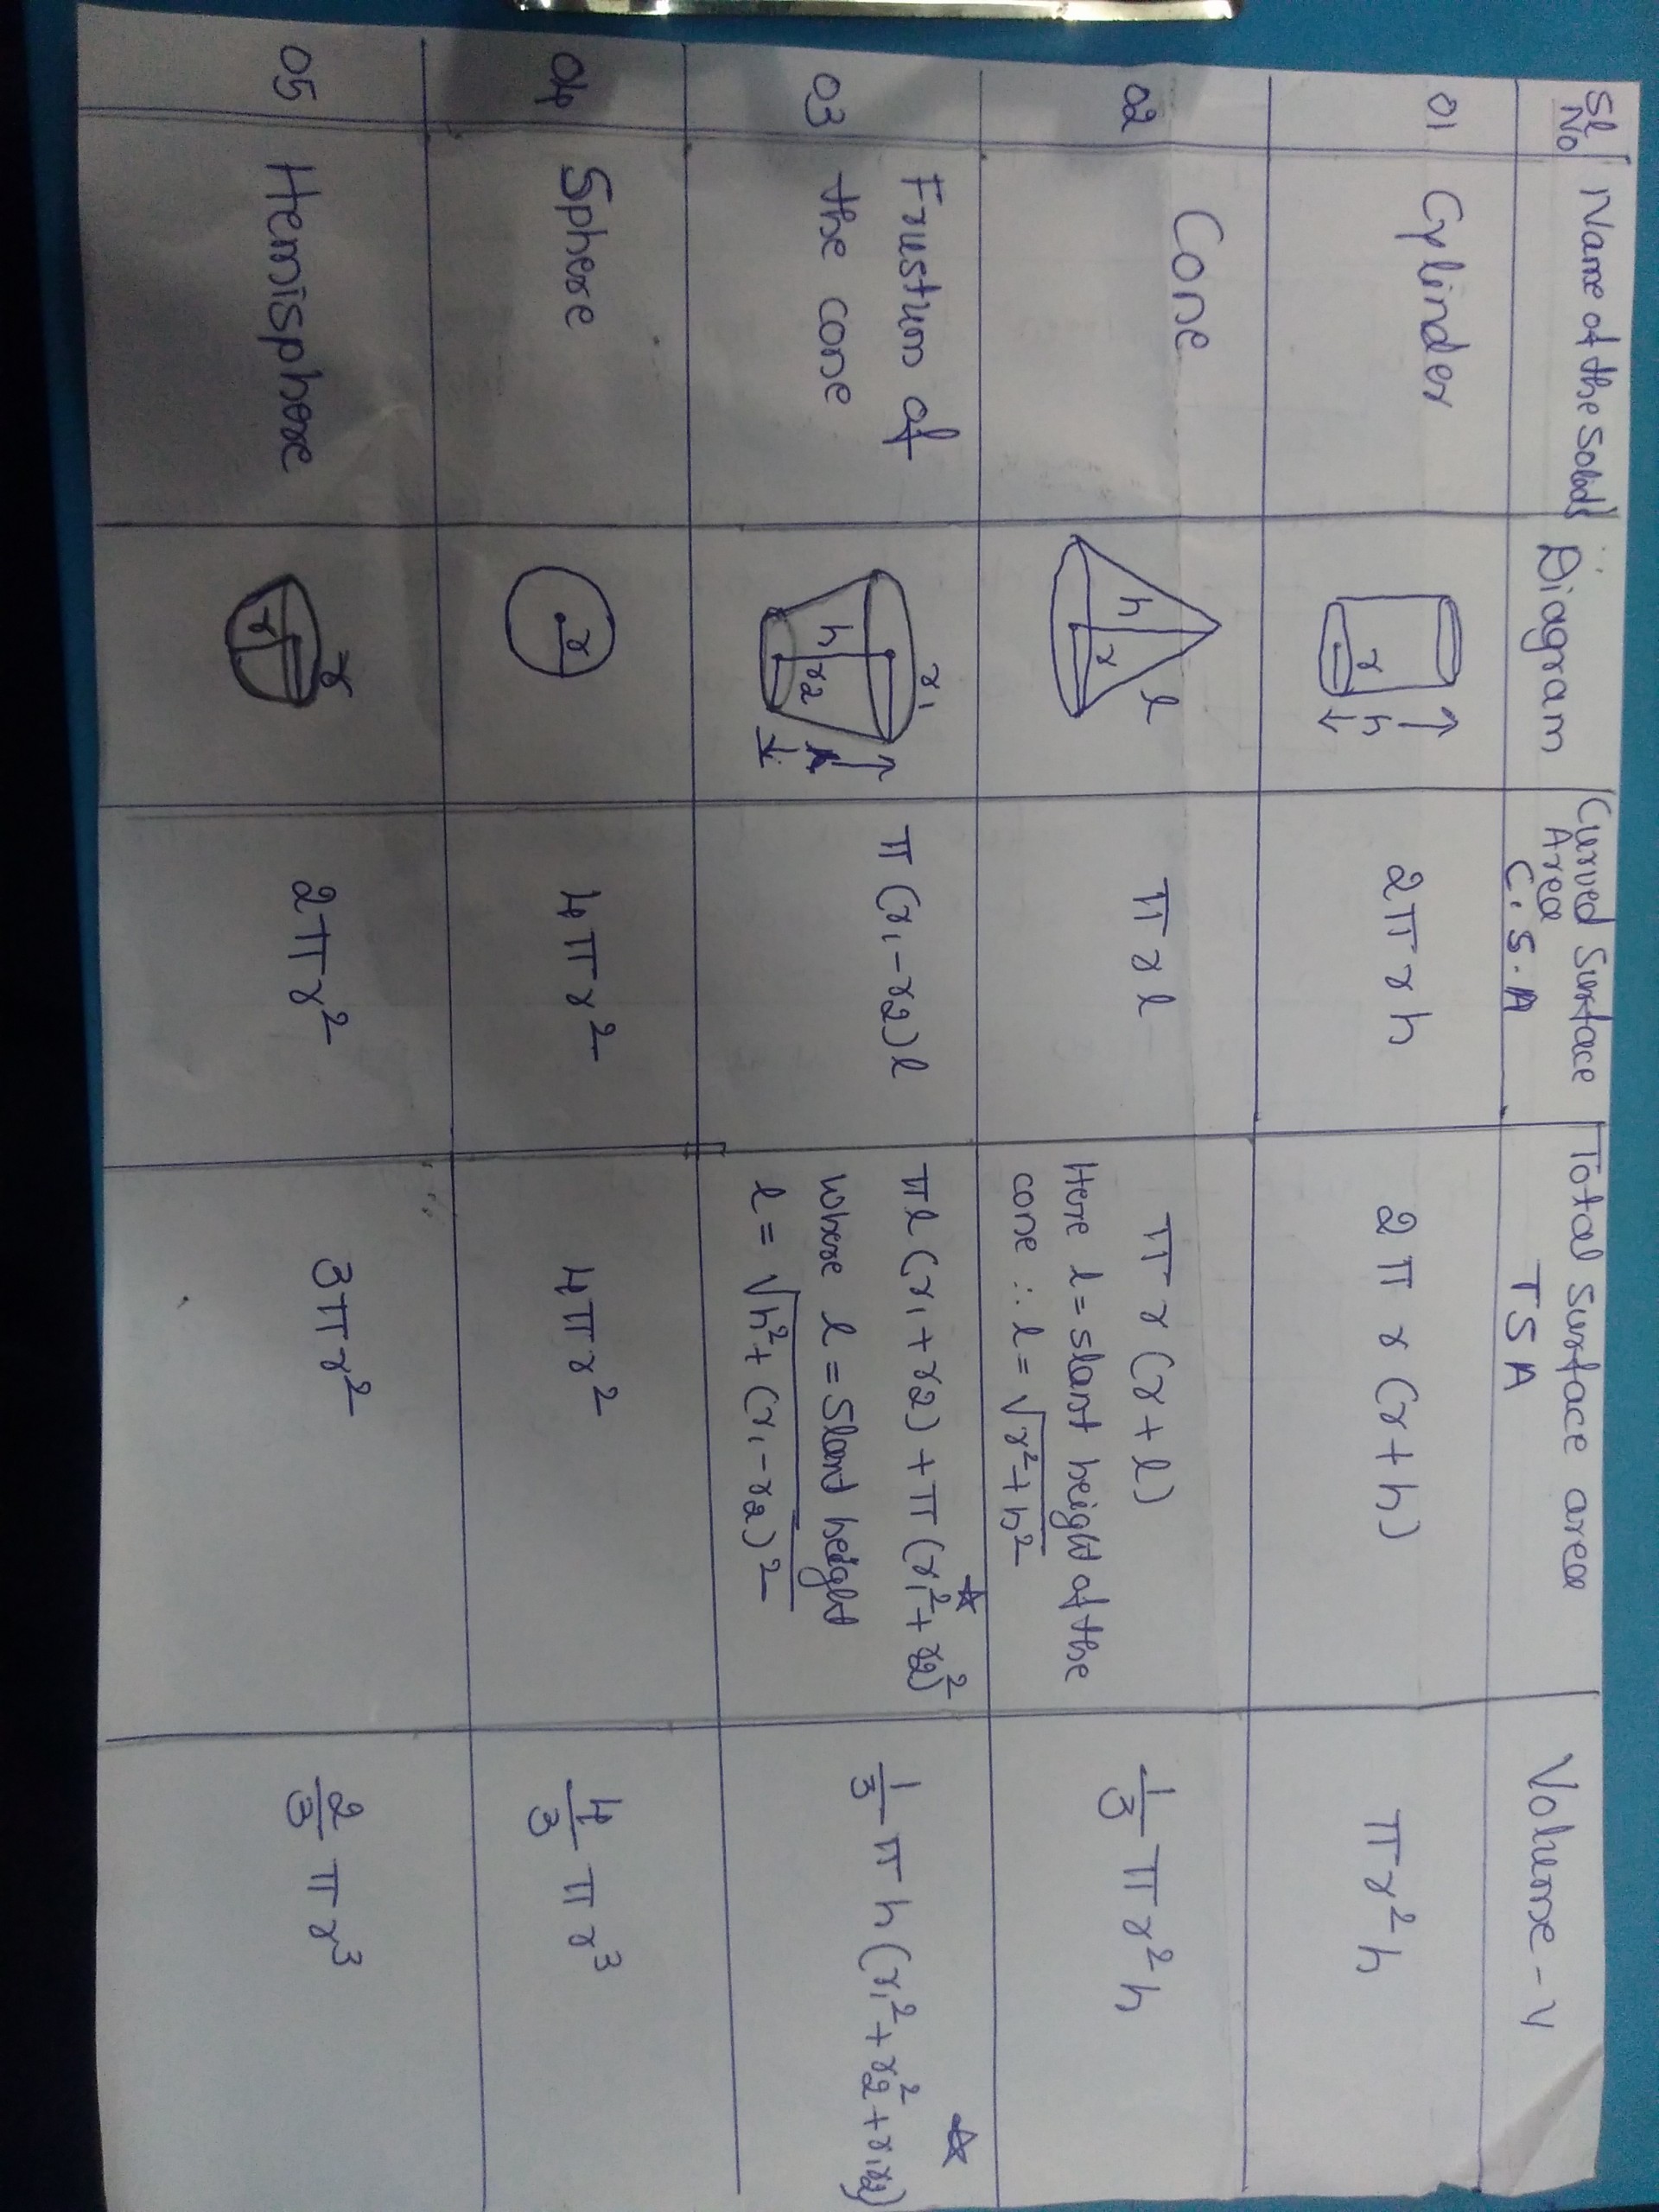 Sl No
Name of the Solids
Diagram
Curved Surface Area C.S.A
Total surface area TSA
Volume - V
01
Cylinder
r
h
2πrh
2πr(r+h)
πr²h
02
Cone
h
r
l
πrl
πr(r+l)
Here l = slant height of the
cone ∴ l = √r²+h²
1/3 πr²h
03
Frustum of
the cone
r1
h
r2
π(r1-r2)l
πl(r1+r2)+π(r1²+r2²
where l = Slant height
l = √h²+(r1-r2)²
1/3 πh(r1²+r2²+r1r2)
04
Sphere
r
4πr²
4πr²
4/3 πr³
05
Hemisphere
r
r
2πr²
3πr²
2/3 πr³